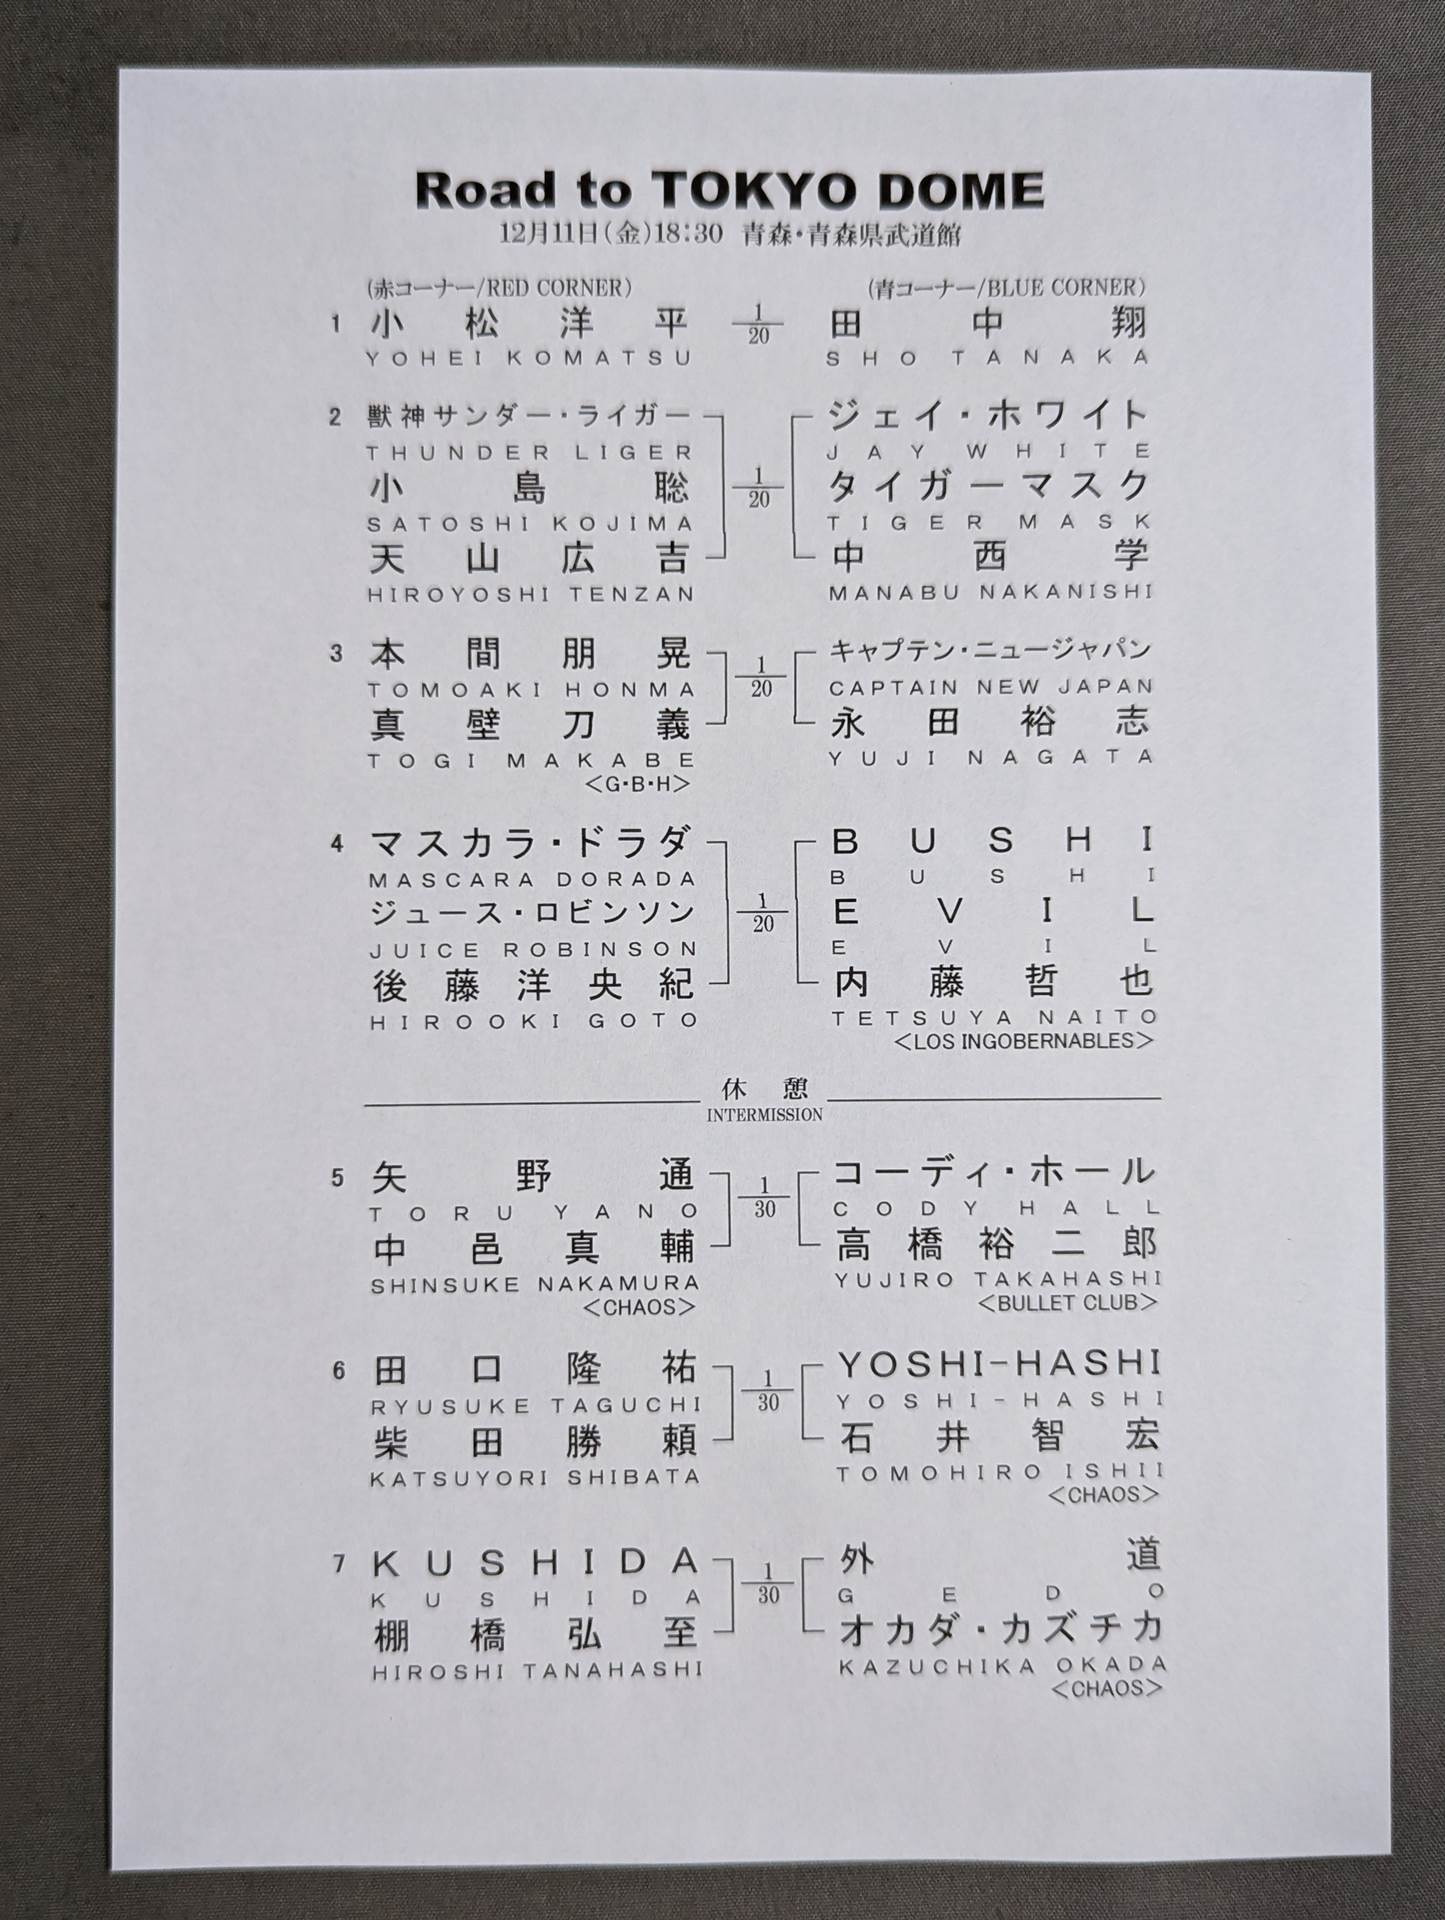 Road to TOKYO DOME
12月11日(金)18:30 青森・青森県武道館
(赤コーナー/RED CORNER) (青コーナー/BLUE CORNER)
1 小松洋平 1/20 田中翔
YOHEI KOMATSU SHO TANAKA
2 獣神サンダー・ライガー ジェイ・ホワイト
THUNDER LIGER JAY WHITE
小島聡 1/20 タイガーマスク
SATOSHI KOJIMA TIGER MASK
天山広吉 中西学
HIROYOSHI TENZAN MANABU NAKANISHI
3 本間朋晃 1/20 キャプテン・ニュージャパン
TOMOAKI HONMA CAPTAIN NEW JAPAN
真壁刀義 永田裕志
TOGI MAKABE YUJI NAGATA
<G・B・H>
4 マスカラ・ドラダ BUSHI
MASCARA DORADA BUSHI
ジュース・ロビンソン 1/20 EVIL
JUICE ROBINSON EVIL
後藤洋央紀 内藤哲也
HIROOKI GOTO TETSUYA NAITO
<LOS INGOBERNABLES>
休憩
INTERMISSION
5 矢野通 1/30 コーディ・ホール
TORU YANO CODY HALL
中邑真輔 高橋裕二郎
SHINSUKE NAKAMURA YUJIRO TAKAHASHI
<CHAOS> <BULLET CLUB>
6 田口隆祐 1/30 YOSHI-HASHI
RYUSUKE TAGUCHI YOSHI-HASHI
柴田勝頼 石井智宏
KATSUYORI SHIBATA TOMOHIRO ISHII
<CHAOS>
7 KUSHIDA 1/30 外道
KUSHIDA GEDO
棚橋弘至 オカダ・カズチカ
HIROSHI TANAHASHI KAZUCHIKA OKADA
<CHAOS>